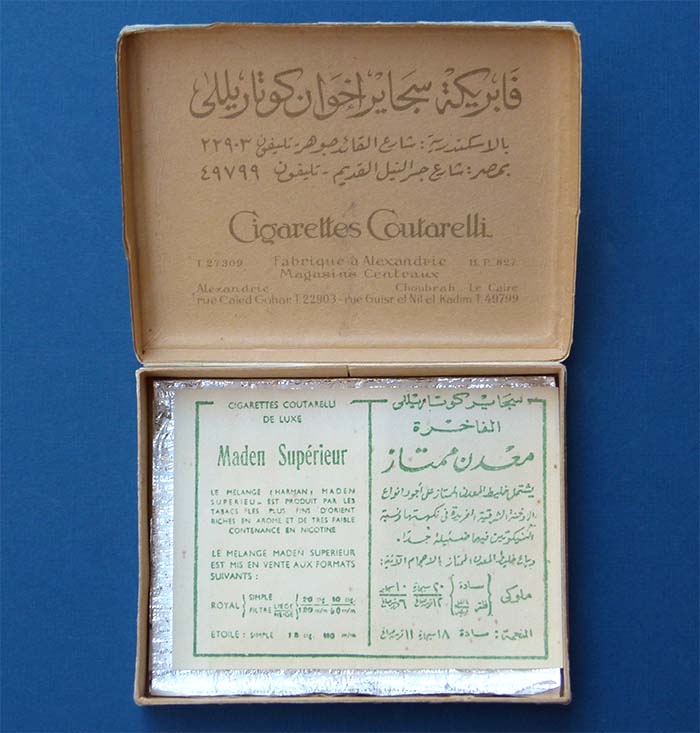 فابريكة سجاير إخوان كوتاريللى
بالاسكندرية : شارع القائد جوهر - تليفون ٢٢٩٠٣
بمصر : شارع جسر النيل القديم - تليفون ٤٩٧٩٩
Cigarettes Coutarelli
T. 27309 Fabrique à Alexandrie B. P. 827
Magasins Centraux
Alexandrie Choubrah - Le Caire
rue Caied Gohar T. 22903 - rue Guisr el Nil el Kadim T. 49799
CIGARETTES COUTARELLI
DE LUXE
Maden Supérieur
LE MELANGE (HARMAN) MADEN
SUPERIEUR - EST PRODUIT PAR LES
TABACS LES PLUS FINS D'ORIENT
RICHES EN AROME ET DE TRÈS FAIBLE
CONTENANCE EN NICOTINE
LE MELANGE MADEN SUPERIEUR
EST MIS EN VENTE AUX FORMATS
SUIVANTS :
ROYAL { SIMPLE 20 cig. 10 cig.
FILTRE LIÈGE NEIGE 120 m/m 60 m/m
ETOILE : SIMPLE 18 cig. 110 m/m
سجاير كوتاريللى
الفاخرة
معدن ممتاز
يشتمل خليط المعدن الممتاز على أجود أنواع
الأدخنة الشرقية الفريدة في نكهتها ونسبة
النيكوتين فيها ضئيلة جدا .
ويباع خليط المعدن الممتاز بالأحجام الآتية :
ملوكى { سادة فلتر ٢٠ سيجارة ١٠ سجاير
١٢ قرش صاغ ٦ قرش صاغ
النجمة : سادة ١٨ سيجارة ١١ قرش صاغ